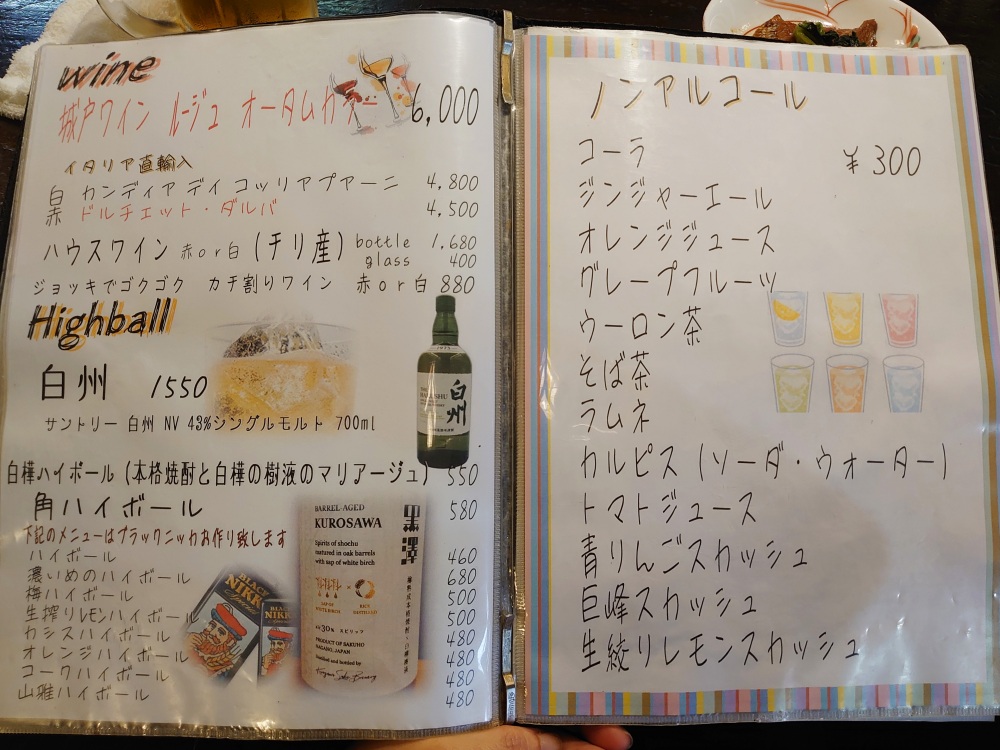 wine
城戸ワイン ルージュ オータムカラー 6,000
イタリア直輸入
白 カンディア デイ コッリアプアーニ 4.800
赤 ドルチェット・ダルバ 4.500
ハウスワイン 赤or白 (チリ産) bottle 1.680
glass 400
ジョッキでゴクゴク カチ割りワイン 赤or白 880
Highball
白州 1550
サントリー 白州 NV 43%シングルモルト 700ml
白州
白樺ハイボール (本格焼酎と白樺の樹液のマリアージュ) 550
角ハイボール 580
下記のメニューはブラックニッカお作り致します
ハイボール 460
濃いめのハイボール 680
梅ハイボール 500
生搾りレモンハイボール 500
カシスハイボール 480
オレンジハイボール 480
コークハイボール 480
山雅ハイボール 480
BLACK
NIKKA
BARREL-AGED
KUROSAWA
黒澤
Spirits of shochu
matured in oak barrels
with sap of white birch
30% スピリッツ
PRODUCT OF SAKUHO
NAGANO, JAPAN
ノンアルコール
コーラ ¥300
ジンジャーエール
オレンジジュース
グレープフルーツ
ウーロン茶
そば茶
ラムネ
カルピス (ソーダ・ウォーター)
トマトジュース
青りんごスカッシュ
巨峰スカッシュ
生絞りレモンスカッシュ